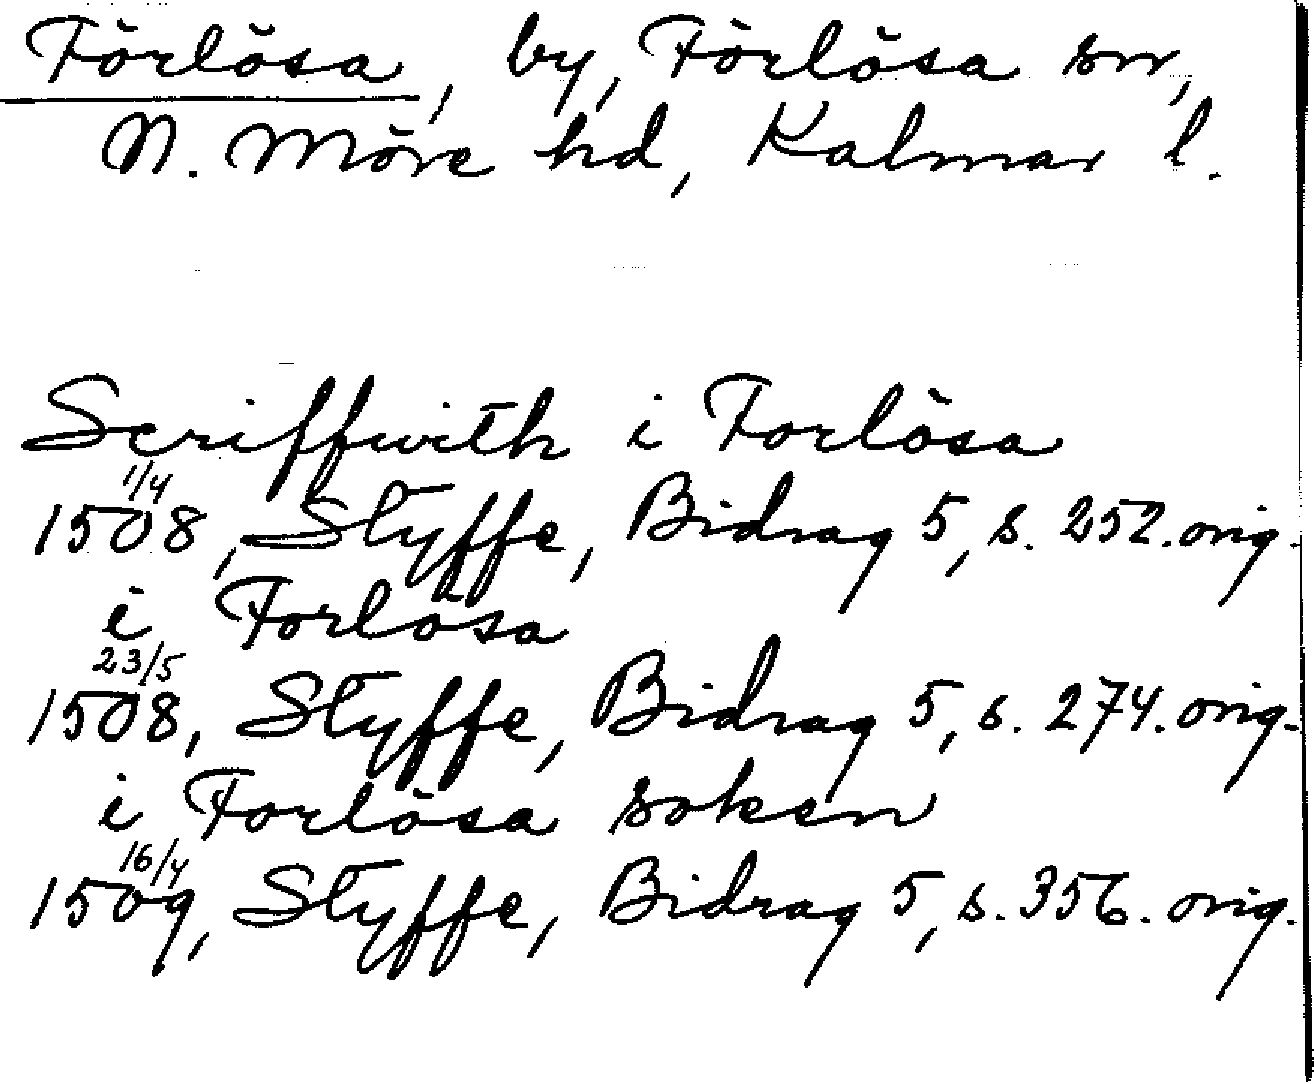 Förlösa, by, Förlösa sn,
N. Möre hd, Kalmar l.
Scriffwith i Forlösa
1/4
1508, Styffe, Bidrag 5, s. 252. orig.
i Forlösa
23/5
1508, Styffe, Bidrag 5, s. 274. orig.
i Forlösa soken
16/4
1509, Styffe, Bidrag 5, s. 356. orig.